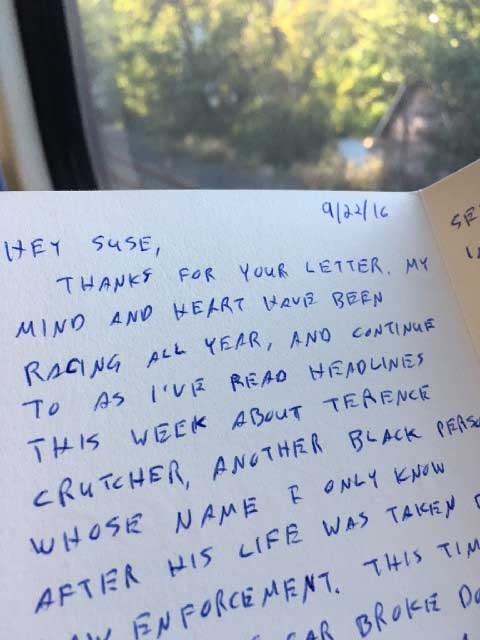 9/22/16
HEY SUSE,
THANKS FOR YOUR LETTER. MY
MIND AND HEART HAVE BEEN
RACING ALL YEAR, AND CONTINUE
TO AS I'VE READ HEADLINES
THIS WEEK ABOUT TERENCE
CRUTCHER, ANOTHER BLACK PERSO
WHOSE NAME I ONLY KNOW
AFTER HIS LIFE WAS TAKEN
ENFORCEMENT. THIS TIM
BROKE DO
SE